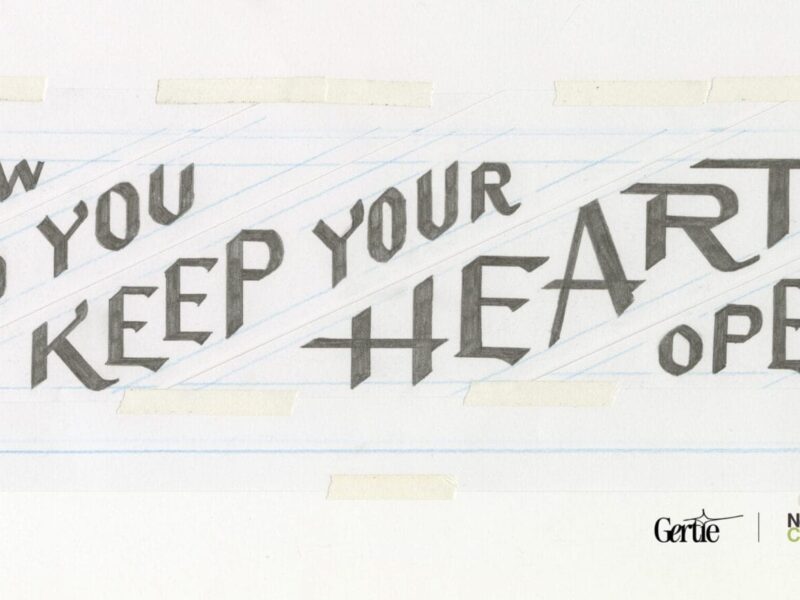 OW
O YOU
KEEP YOUR
HEART
OPE
Gertie
N
C